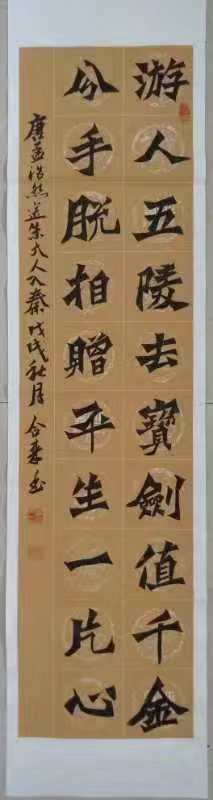 游人五陵去寶劍值千金
分手脱相贈平生一片心
唐孟浩然送朱大入秦戊戌秋月